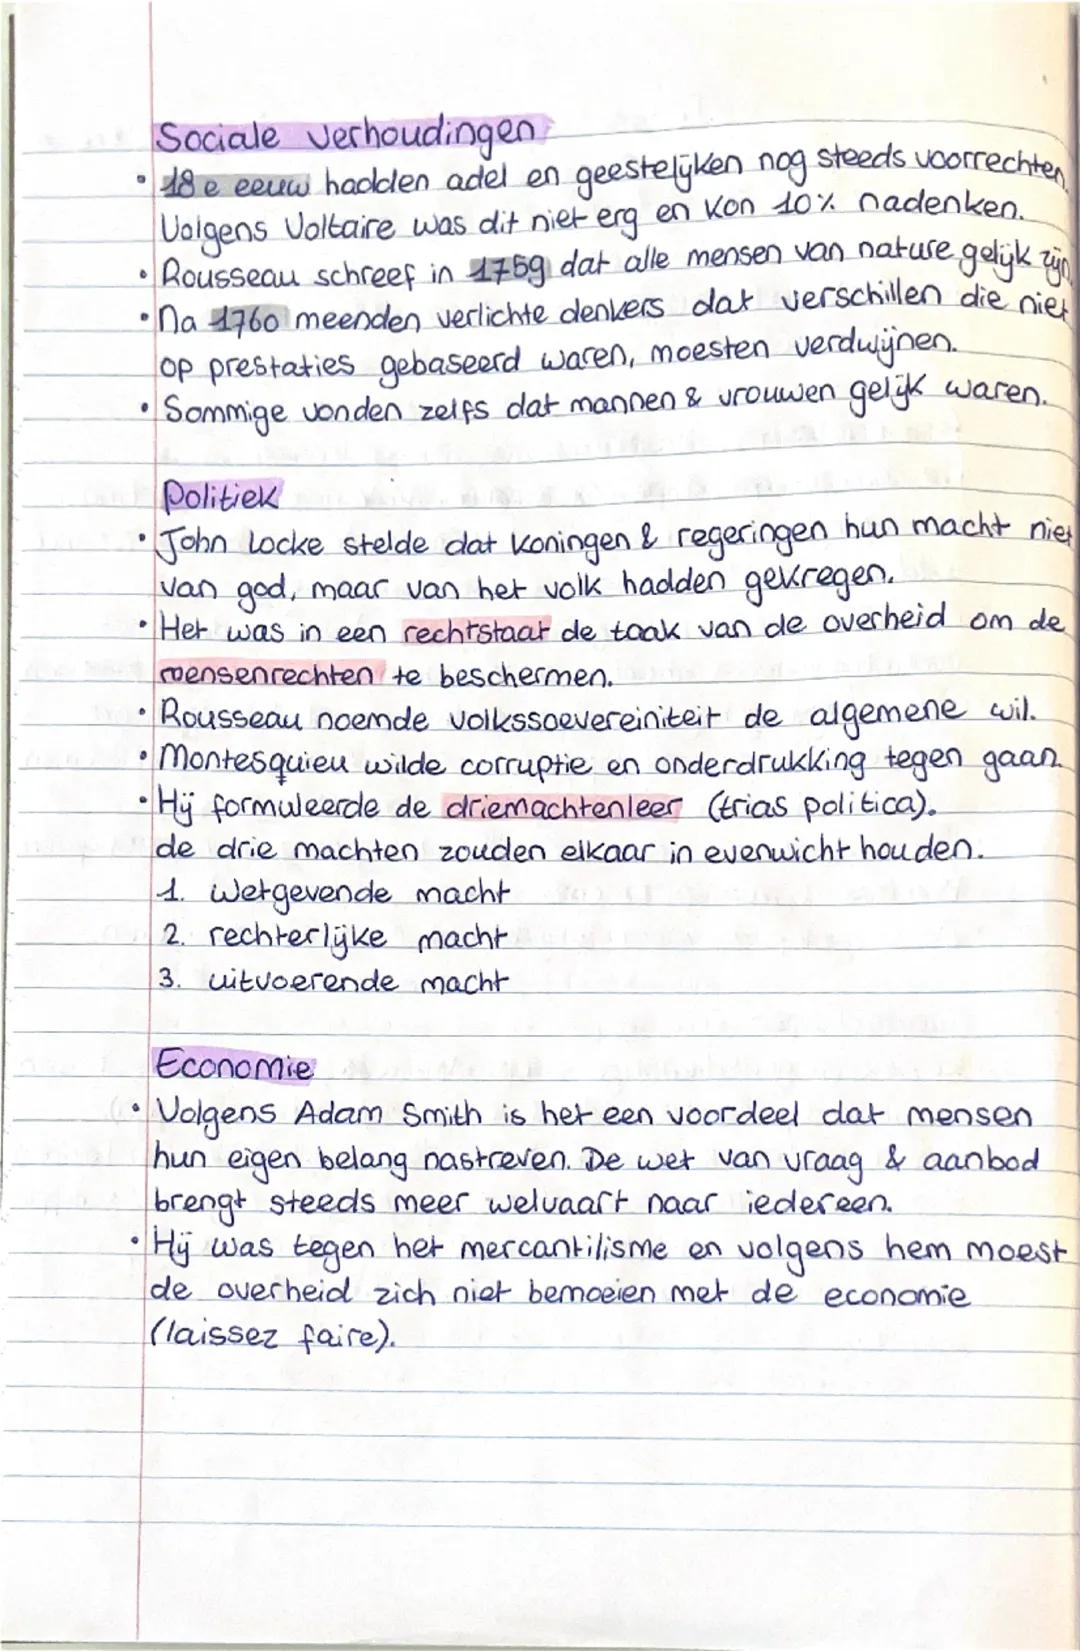 Sociale verhoudingen
• 18e eeuw hadden adel en geestelijken nog steeds voorrechten.
Volgens Voltaire was dit niet erg en kon 10% nadenken.
• Rousseau schreef in 1759 dat alle mensen van nature gelijk zijn
• Na 1760 meenden verlichte denkers dat verschillen die niet
op prestaties gebaseerd waren, moesten verdwijnen.
• Sommige vonden zelfs dat mannen & vrouwen gelijk waren.
Politiek
• John Locke stelde dat koningen & regeringen hun macht niet
van god, maar van het volk hadden gekregen.
• Het was in een rechtstaat de taak van de overheid om de
mensenrechten te beschermen.
• Rousseau noemde volkssoevereiniteit de algemene wil.
• Montesquieu wilde corruptie en onderdrukking tegen gaan.
• Hij formuleerde de driemachtenleer (trias politica).
de drie machten zouden elkaar in evenwicht houden.
1. wetgevende macht
2. rechterlijke macht
3. uitvoerende macht
Economie
• Volgens Adam Smith is het een voordeel dat mensen
hun eigen belang nastreven. De wet van vraag & aanbod
brengt steeds meer welvaart naar iedereen.
• Hij was tegen het mercantilisme en volgens hem moest
de overheid zich niet bemoeien met de economie
(laissez faire).